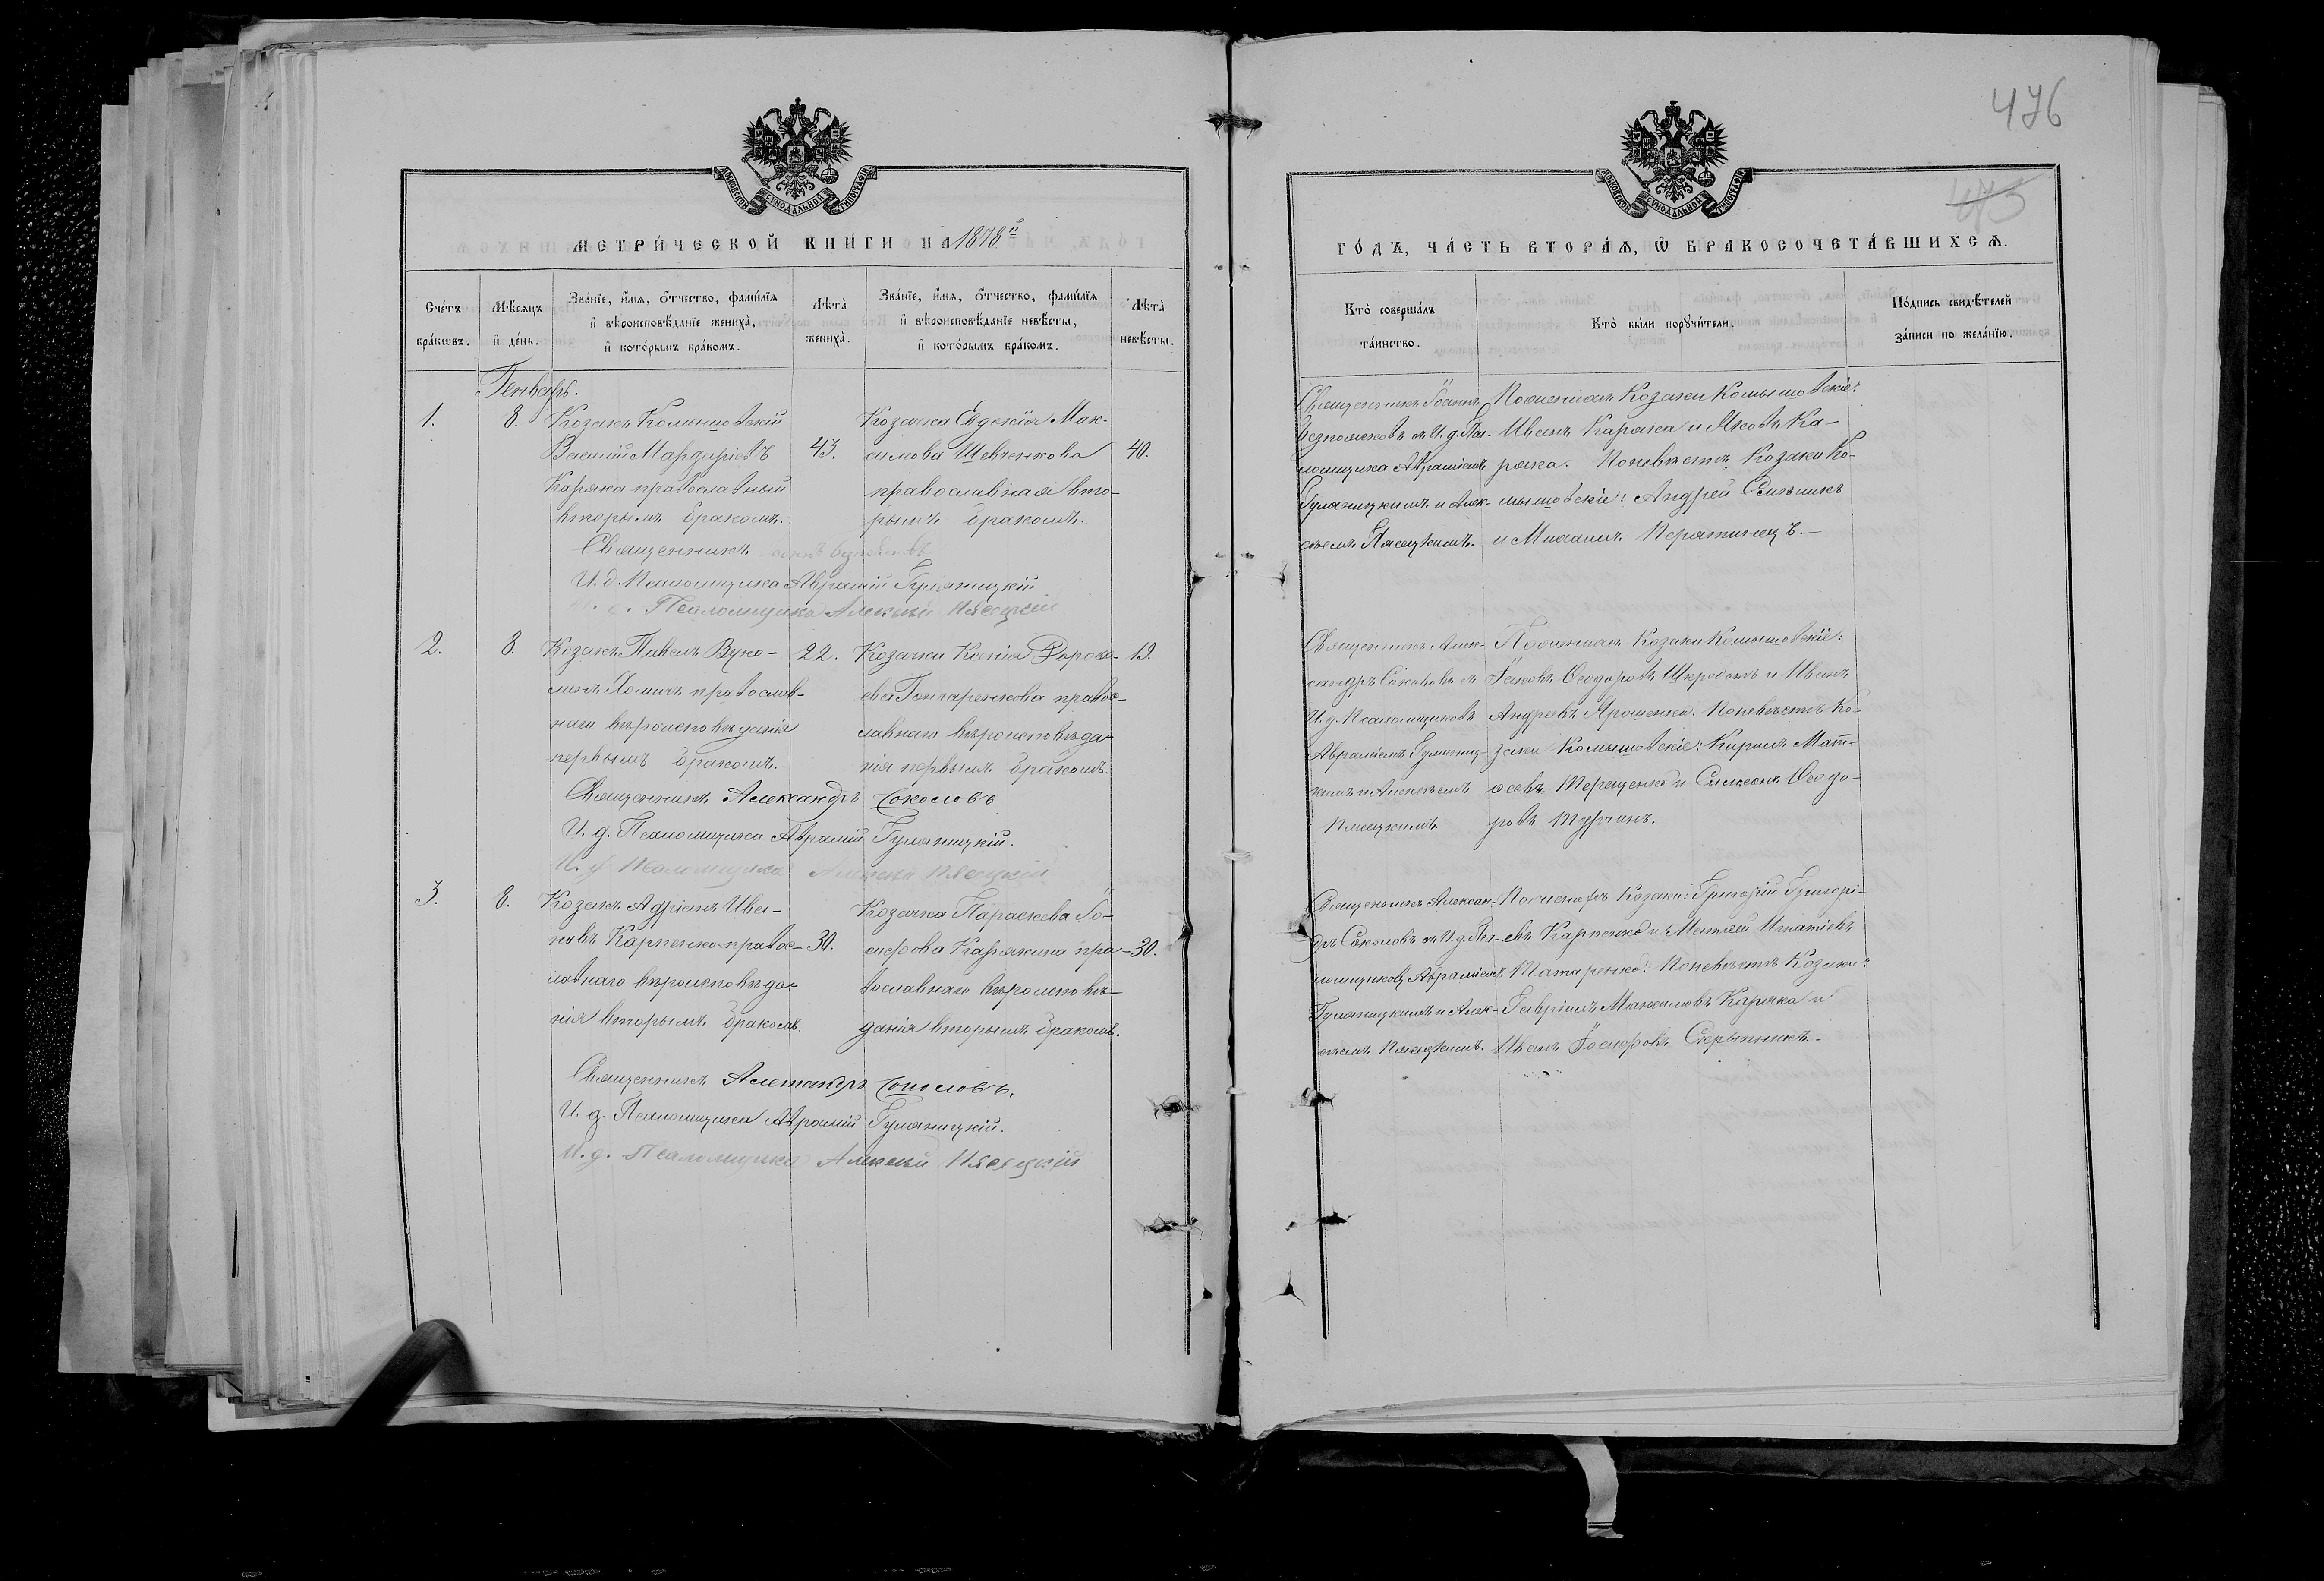 476
475
МОСКОВСКОЙ СѴНОДАЛЬНОЙ ТИПОГРАФІИ
МЕТРИ́ЧЕСКОЙ КНИ́ГИ НА 1878й
Сче́тъ бра́ковъ.
Мѣ́сяцъ и҆ де́нь.
Зва́нїе, и҆́мя, ѻ҆́тчество, фами́лїя
и҆ вѣроисповѣ́данїе жениха̀,
и҆ кото́рымъ бра́комъ.
Лѣта̀
жениха̀.
Зва́нїе, и҆́мя, ѻ҆́тчество, фами́лїя
и҆ вѣроисповѣ́данїе невѣ́сты,
и҆ кото́рымъ бра́комъ.
Лѣта̀
невѣ́сты.
Генварь.
1.
8.
Козакъ Комышовскій
Василій
Каряка православный
вторымъ бракомъ.
43.
Козачка Евдокія Мак-
симова Шевченкова
православная вто-
рымъ бракомъ.
40.
Священникъ
И. д. Псаломщика Аврамій Гуляницкій
И. д. Псаломщика Алексѣй Пясецкій
2.
8.
Козакъ Павелъ Вуко-
ловъ Хоминъ православ-
наго вѣроисповѣданія
первымъ бракомъ.
22.
Козачка Ксенія
ева Гончаренкова правос-
лавнаго вѣроисповѣда-
нія первымъ бракомъ.
19.
Священникъ Александръ Соколовъ
И. д. Псаломщика Аврамій Гуляницкій.
И. д. Псаломщика Алексѣй Пясецкій
3.
8.
Козакъ Адріанъ Ива-
новъ Карпенко правос-
лавнаго вѣроисповѣда-
нія вторымъ бракомъ.
30.
Козачка Параскева Іо-
сифова Карякина пра-
вославнаго вѣроисповѣ-
данія вторымъ бракомъ.
30.
Священникъ Александръ Соколовъ.
И. д. Псаломщика Аврамій Гуляницкій.
И. д. Псаломщика Алексѣй Пясецкій
МОСКОВСКОЙ СѴНОДАЛЬНОЙ ТИПОГРАФІИ
ГО́ДЪ, ЧА́СТЬ ВТОРА́Я, Ѽ БРАКОСОЧЕТА́ВШИХСЯ.
Кто̀ соверша́лъ
та́инство.
Кто̀ бы́ли порꙋчи́тели.
По́дпись свидѣ́телей
за́писи по жела́нїю.
Священникъ Іоаннъ
съ И. д. Пса-
ломщика Аврамiемъ
Гуляницкимъ и Алек-
сѣемъ Пясецкимъ.
По женихѣ Козаки Комышовскіе:
Иванъ Каряка и Яковъ Ка-
ряка. По невѣстѣ Козаки Ко-
мышовскіе: Андрей
и Михаилъ Перятинецъ.
Священникъ Алек-
сандръ Соколовъ съ
И. д. Псаломщиковъ
Авраміемъ Гуляниц-
кимъ и Алексѣемъ
Пясецкимъ.
По женихѣ Козаки Комышовскіе:
Іаковъ Ѳеодоровъ и Иванъ
Андреевъ Ярошенко. По невѣстѣ Ко-
заки Комышовскіе: Кирилъ Мат-
ѳеевъ Терещенко и Симеонъ Ѳеодо-
ровъ Турчинъ.
Священникъ Алексан-
дръ Соколовъ съ И. д. Пса-
ломщиковъ Авраміемъ
Гуляницкимъ и Алек-
сѣемъ Пясецкимъ.
По женихѣ Козаки: Григорій Григорі-
евъ Карпенко и Матѳей Игнатіевъ
Татаренко. По невѣстѣ Козаки:
Гавріилъ Каряка и
Иванъ Іосифовъ